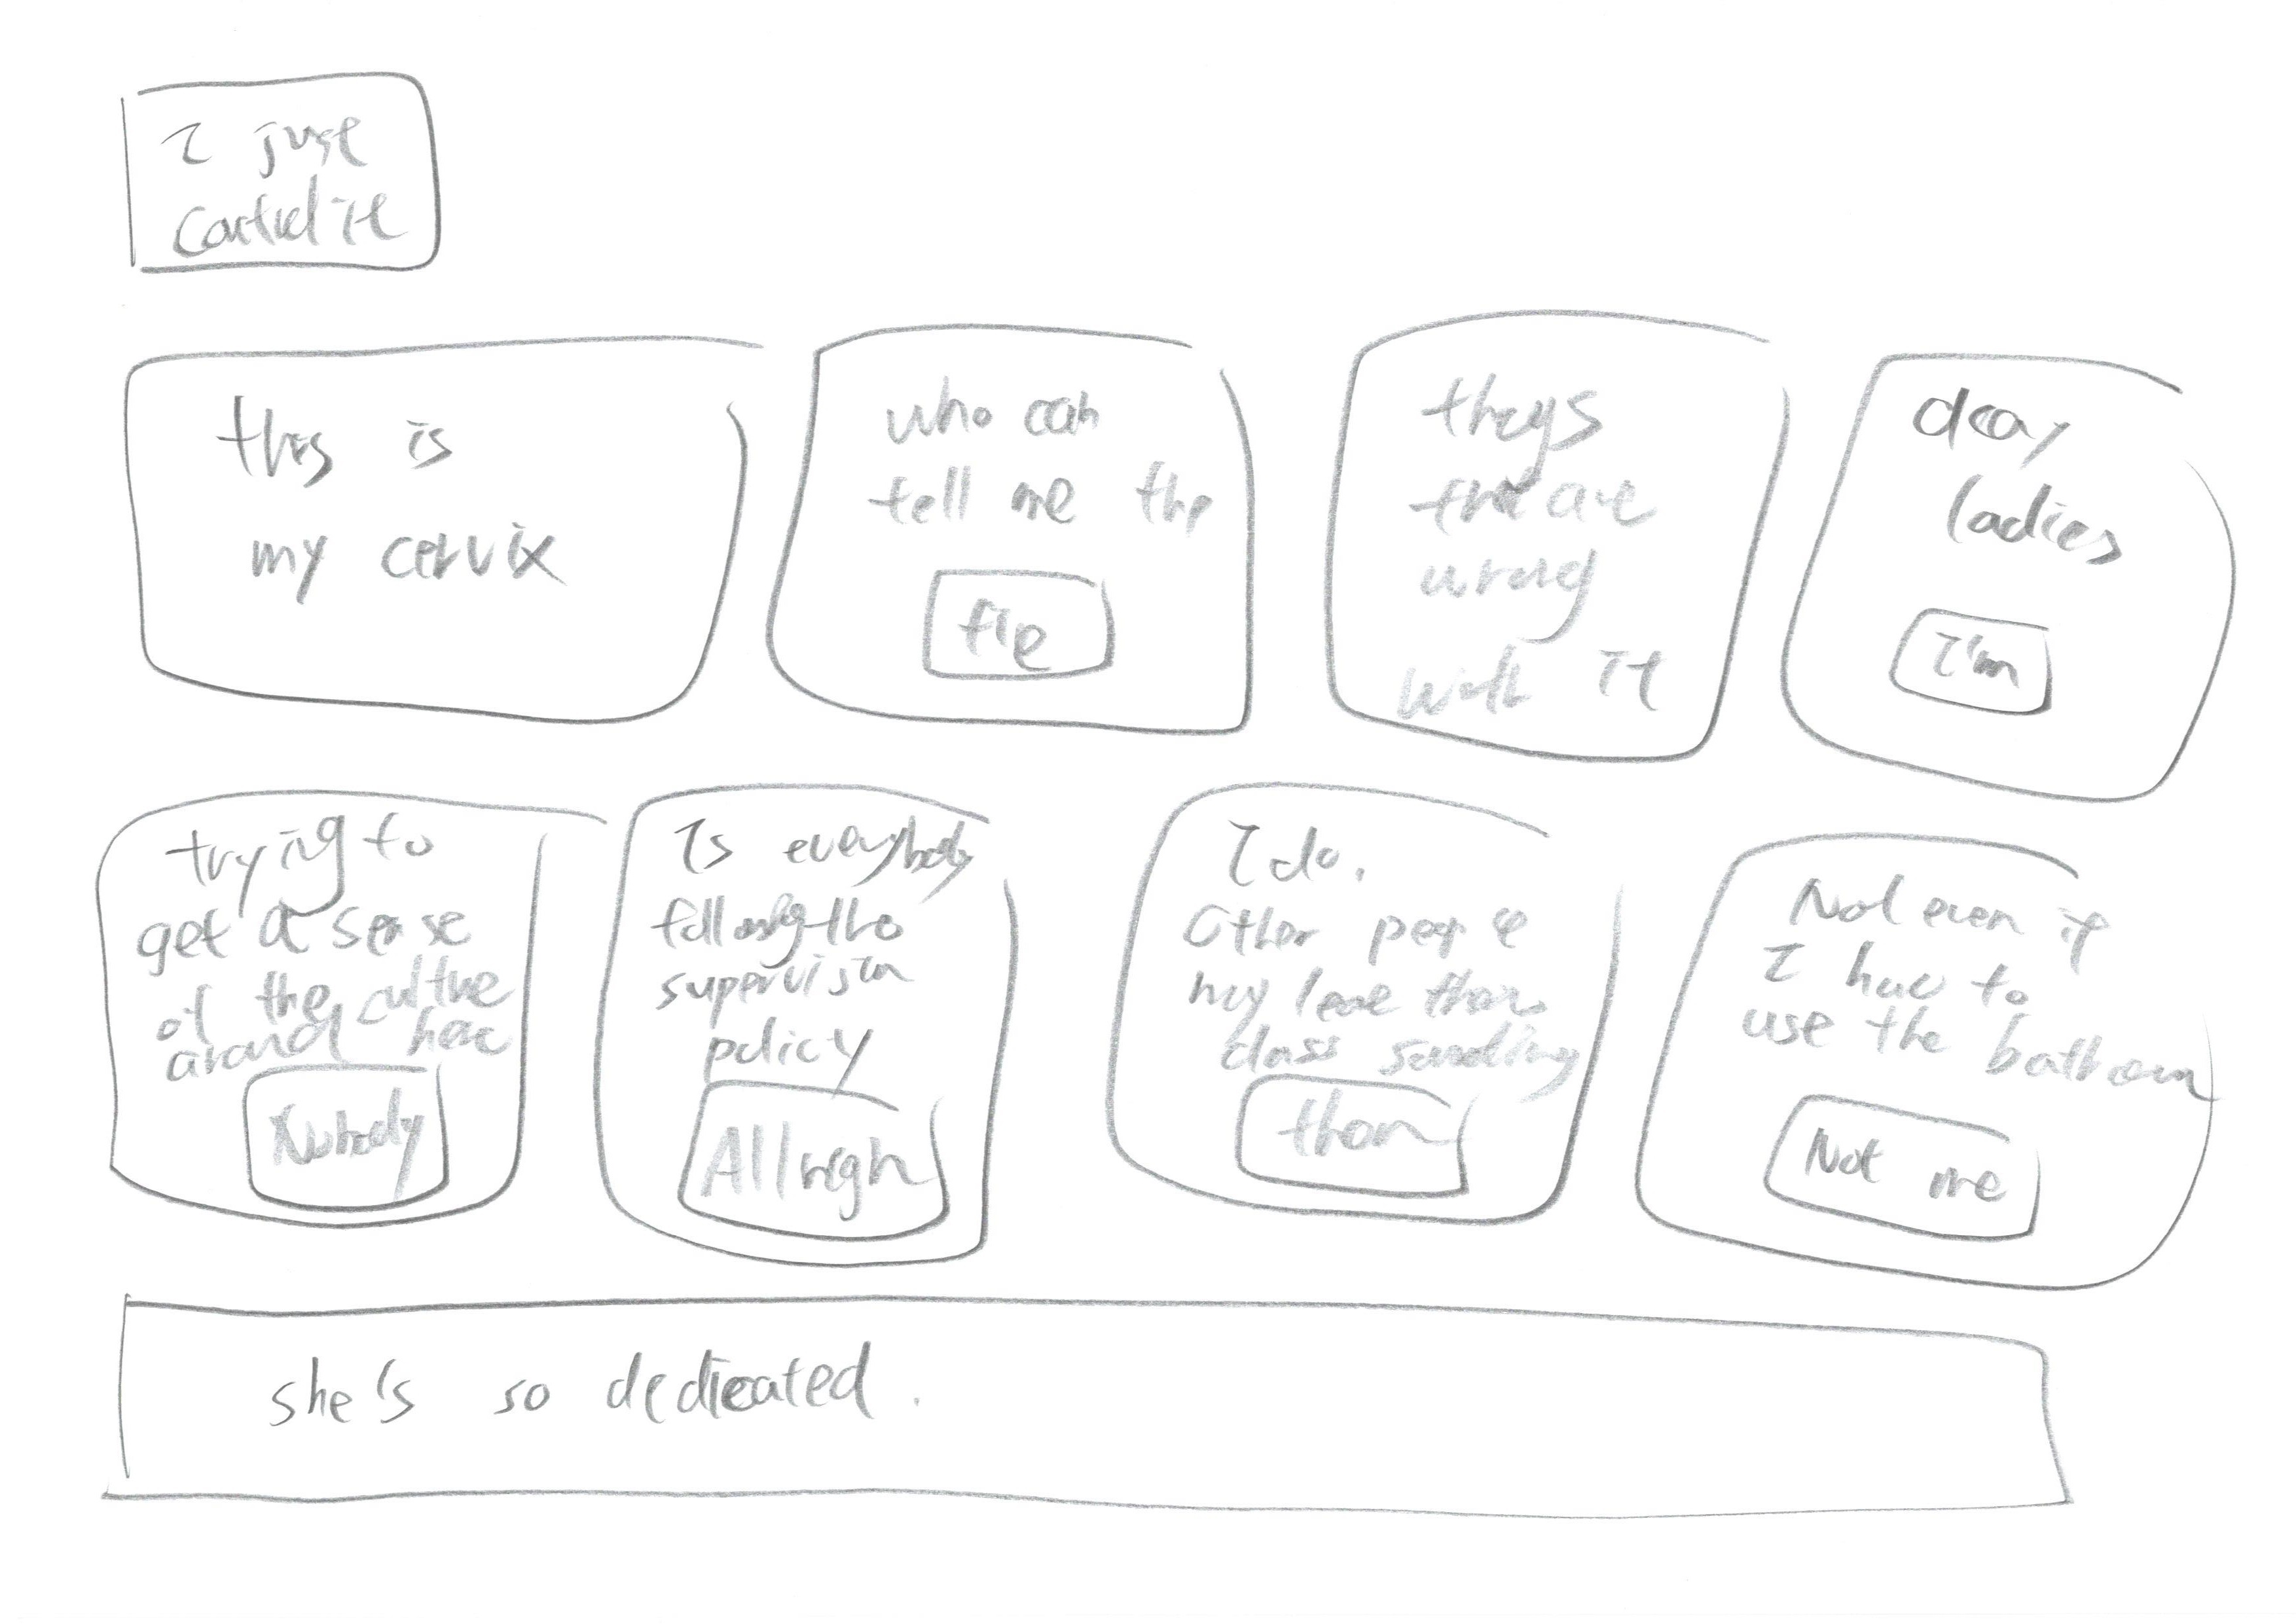 I just
it
this is
my cervix
who can
tell me the
fie
theys
are
wrong
with it
okay
ladies
I'm
trying to
get a sense
of the cultue
around here
Nobody
Is everybody
following the
supervision
policy
All righ
I do.
Other peop e
my leae
class sending
Not even if
I have to
use the bathroom
Not me
she's so dedicated.